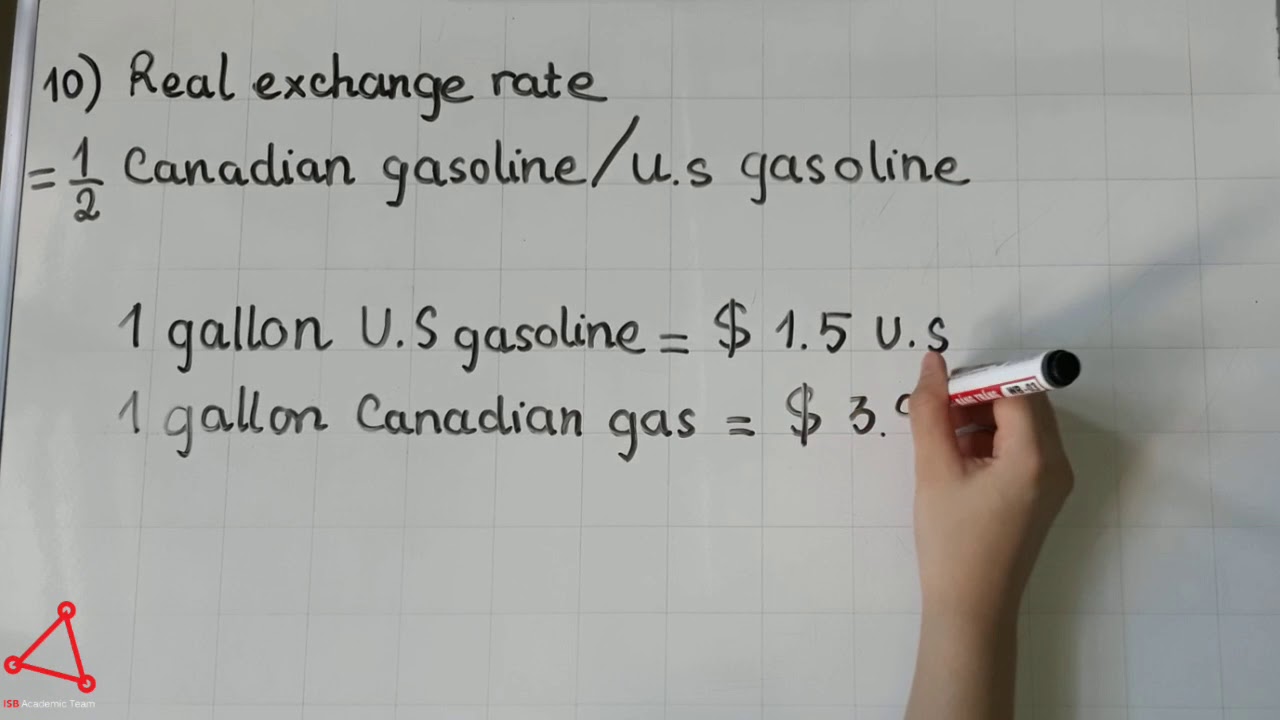 10) Real exchange rate
= 1/2 Canadian gasoline/U.S gasoline
1 gallon U.S gasoline = $ 1.5 U.S
1 gallon Canadian gas = $ 3.
ISB Academic Team